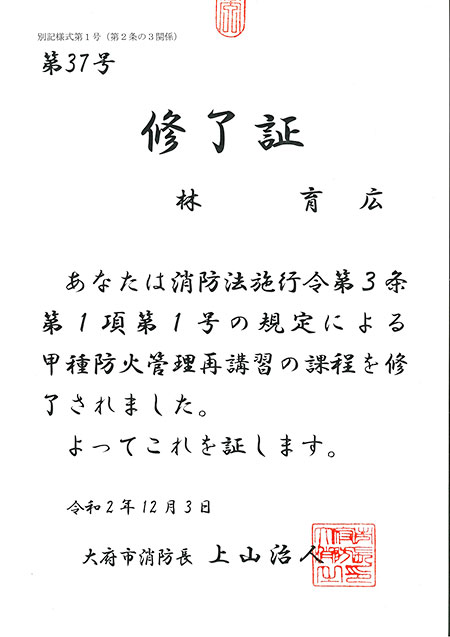 別記様式第1号（第2条の3関係）
第37号
修了証
林　育広
あなたは消防法施行令第3条
第1項第1号の規定による
甲種防火管理再講習の課程を修
了されました。
よってこれを証します。
令和2年12月3日
大府市消防長 上山治人